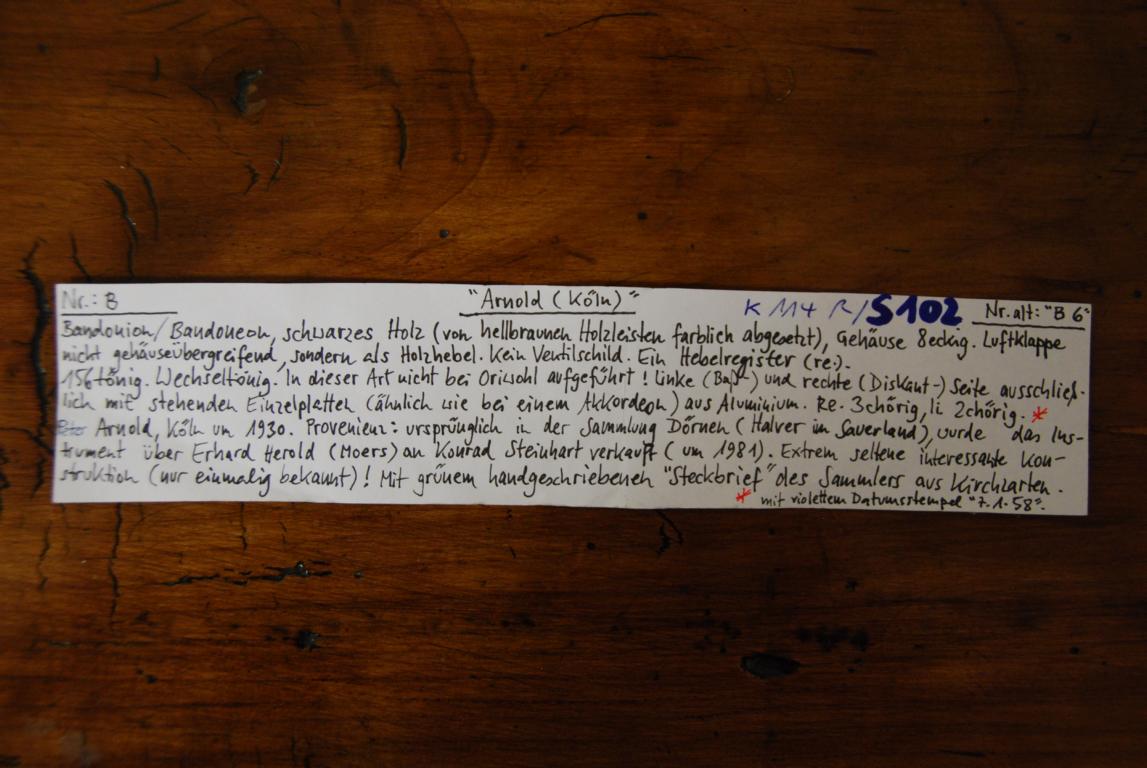 Nr.: B "Arnold (Köln)" K 114 R/S102 Nr. alt: "B 6"
Bandonion/Bandoneon, schwarzes Holz (von hellbraunen Holzleisten farblich abgesetzt), Gehäuse 8eckig. Luftklappe
nicht gehäuseübergreifend, sondern als Holzhebel. Kein Ventilschild. Ein Hebelregister (re.).
156tönig. Wechseltönig. In dieser Art nicht bei Oriwohl aufgeführt! Linke (Baß-) und rechte (Diskant-) Seite ausschließ-
lich mit stehenden Einzelplatten (ähnlich wie bei einem Akkordeon) aus Aluminium. Re. 3chörig, li 2chörig. *
Peter Arnold, Köln um 1930. Provenienz: ursprünglich in der Sammlung Dörnen (Halver im Sauerland), wurde das Ins-
trument über Erhard Herold (Moers) an Konrad Steinhart verkauft (um 1981). Extrem seltene interessante Kon-
struktion (nur einmalig bekannt)! Mit grünem handgeschriebenen "Steckbrief" des Sammlers aus Kirchzarten.
* mit violettem Datumsstempel "7.1.58".